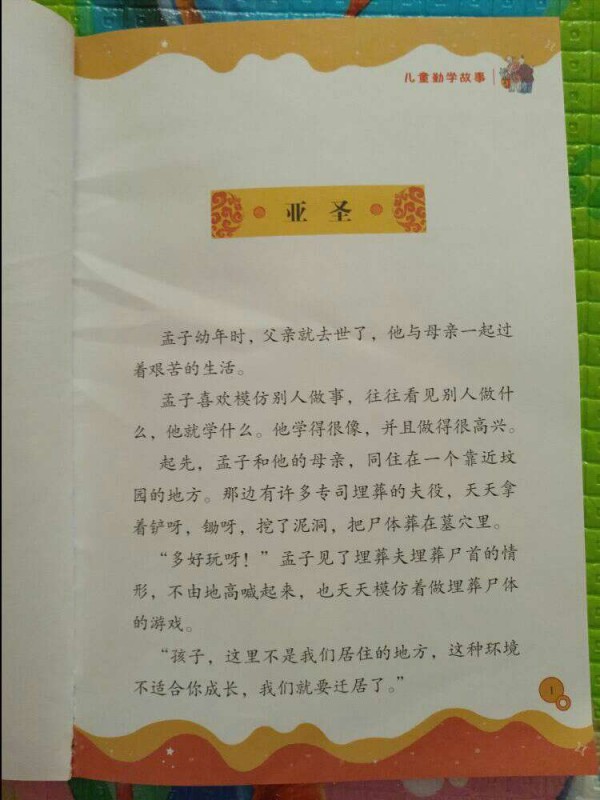 儿童勤学故事
亚圣
孟子幼年时，父亲就去世了，他与母亲一起过
着艰苦的生活。
孟子喜欢模仿别人做事，往往看见别人做什
么，他就学什么。他学得很像，并且做得很高兴。
起先，孟子和他的母亲，同住在一个靠近坟
园的地方。那边有许多专司埋葬的夫役，天天拿
着铲呀，锄呀，挖了泥洞，把尸体葬在墓穴里。
“多好玩呀！”孟子见了埋葬夫埋葬尸首的情
形，不由地高喊起来，也天天模仿着做埋葬尸体
的游戏。
“孩子，这里不是我们居住的地方，这种环境
不适合你成长，我们就要迁居了。”
1